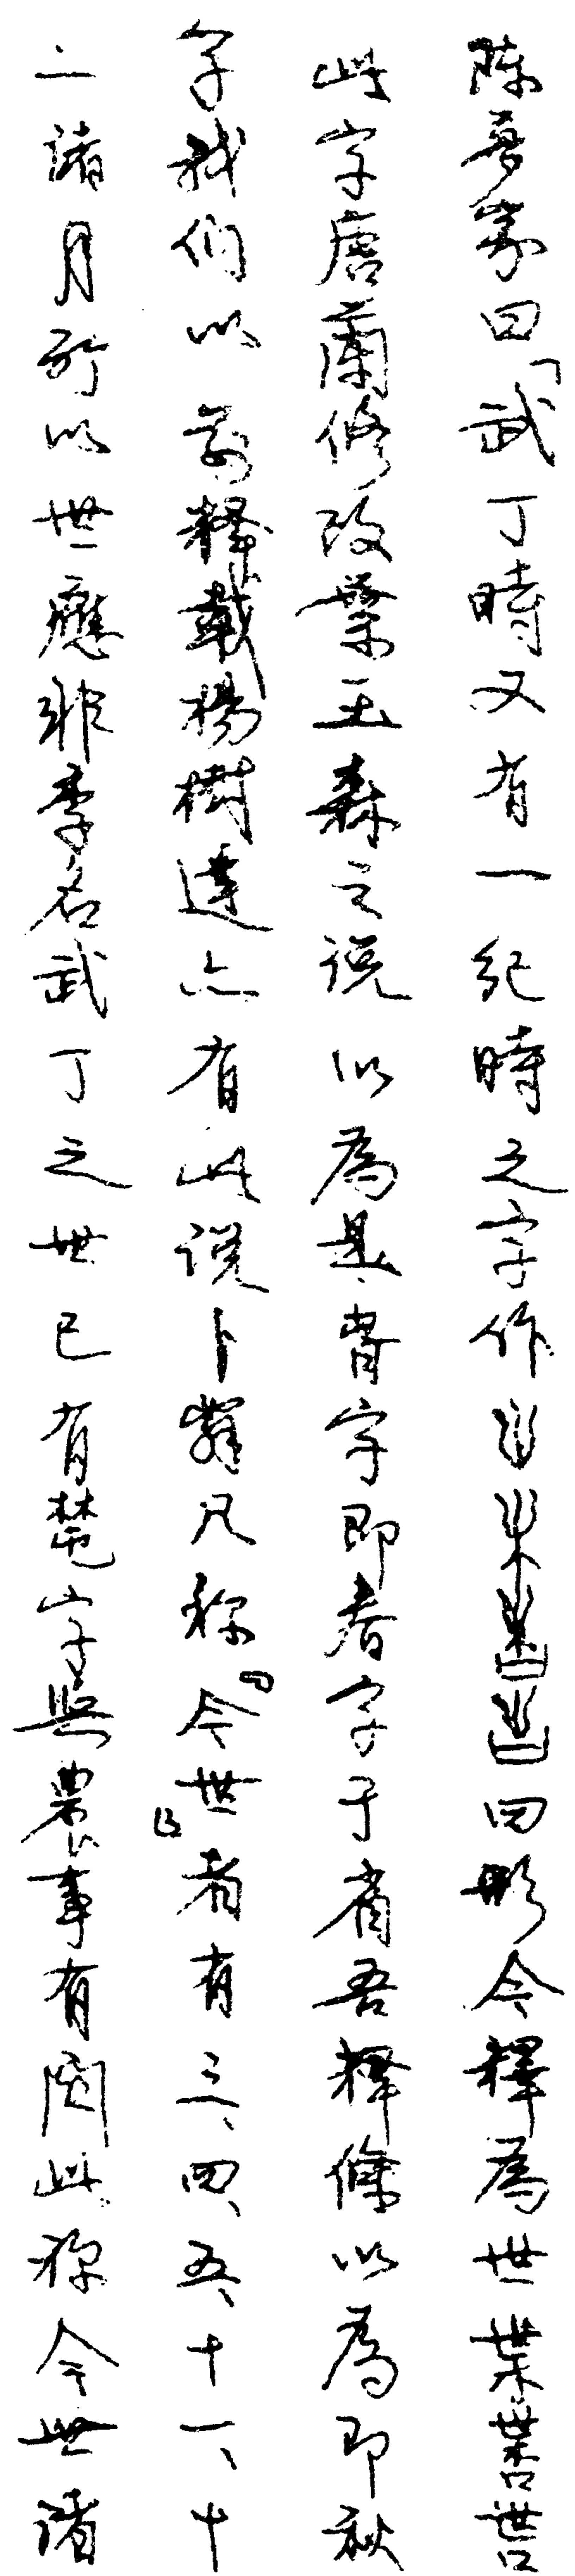 陈梦家曰「武丁時又有一紀時之字作四形今釋為世枼
此字唐蘭修改葉玉森之说以為是旾字即春字于省吾釋條以為即秋
字我们以前釋載楊樹達亦有此说卜辭凡称『今世』者有三、四、五、十一、十
二諸月所以世應非季名武丁之世已有萅字與農事有関此称今世諸